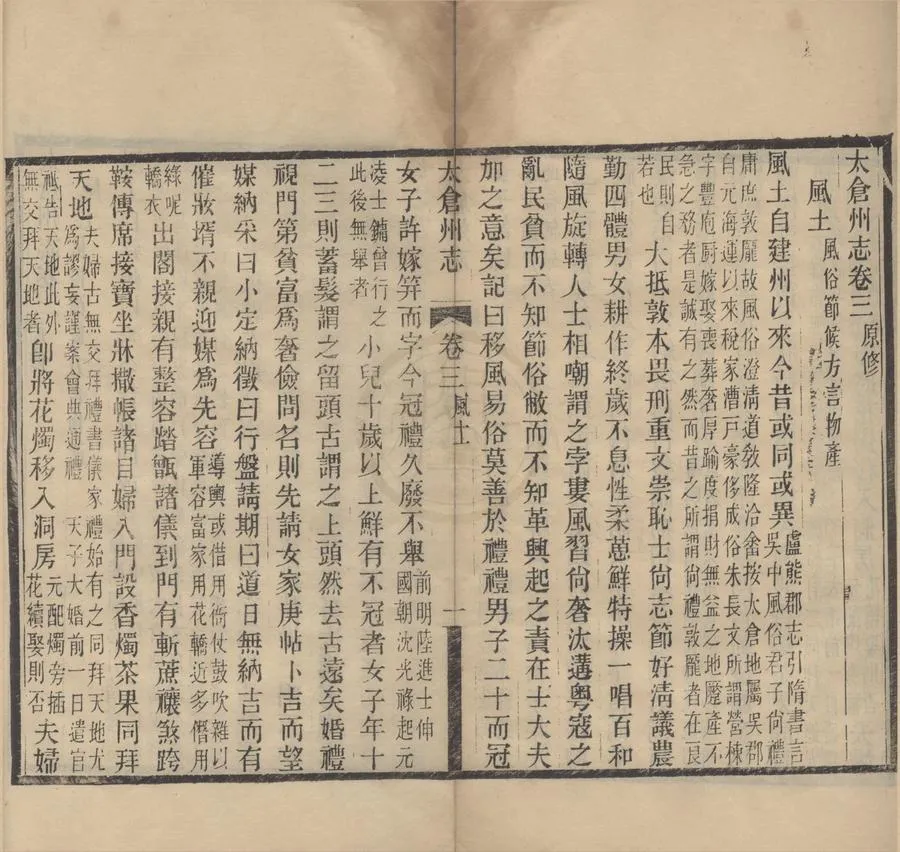 太倉州志卷三 原修
風土 風俗節候方言物產
風土自建州以來今昔或同或異 盧熊郡志引隋書言
吳中風俗君子尙禮
庸庶敦龎故風俗澄清道敎隆洽畲按太倉地屬吳郡
自元海運以來稅家漕戸豪侈成俗朱長文所謂營棟
字豐庖厨嫁娶喪葬奢厚踰度捐財無益之地蹷產不
急之務者是誠有之然而昔之所謂尙禮敦龎者在良
民則自
若也
大抵敦本畏刑重文崇恥士尙志節好淸議農
勤四體男女耕作終歲不息性柔葸鮮特操一唱百和
隨風旋轉人士相嘲謂之孛婁風習尙奢汰遘粤寇之
亂民貧而不知節俗敝而不知革興起之責在士大夫
加之意矣記曰移風易俗莫善於禮禮男子二十而冠
太倉州志 卷三 風土 一
女子許嫁笄而字今冠禮久廢不舉 前明陸進士伸
國朝沈光祿起元
凌士鏞曾行之
此後無舉者
小兒十歲以上鮮有不冠者女子年十
二三則蓄髮謂之留頭古謂之上頭然去古遠矣婚禮
視門第貧富爲奢儉問名則先請女家庚帖卜吉而望
媒納采曰小定納徵曰行盤請期曰道日無納吉而有
催妝壻不親迎媒爲先容 導輿或借用衙仗鼓吹雜以
軍容富家用花轎近多僭用
綠呢
轎衣
出閣接親有整容踏甑諸儀到門有斬蔗禳煞跨
鞍傳席接寶坐牀撒帳諸目婦入門設香燭茶果同拜
天地 夫婦古無交拜禮書儀家禮始有之同拜天地尤
爲謬妄謹案會典通禮 天子大婚前一日遣官
祗告天地此外
無交拜天地者
卽將花燭移入洞房 元配燭旁插
花續娶則否
夫婦